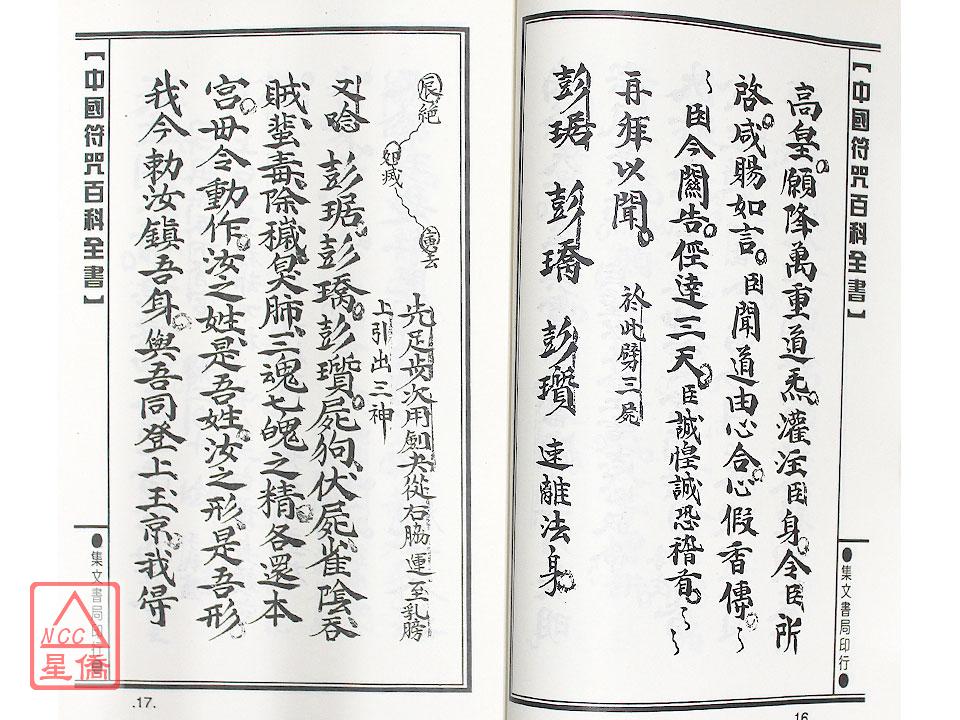 【中國符咒百科全書】
高皇。願降萬重道炁。灌注臣身。令臣所
啓。咸賜如言。臣聞道由心合。心假香傳。
臣今關告。徑達三天。臣誠惶誠恐稽首。
再拜以聞。 於此劈三屍
彭琚 彭瓆 彭璚 速離法身。
●集文書局印行●
16
先足步次用劍夬從右脇運至乳膀
上引出三神
又唸 彭琚。彭瓆。彭璚。屍狗。伏屍。雀陰。吞
賊。蜚毒。除穢。臭肺。三魂七魄之精。各還本
宮。毋令動作。汝之姓。是吾姓。汝之形。是吾形。
我今勅汝鎮吾身。與吾同登上玉京。我得
【中國符咒百科全書】
●集文書局印行●
.17.
NCC
星僑